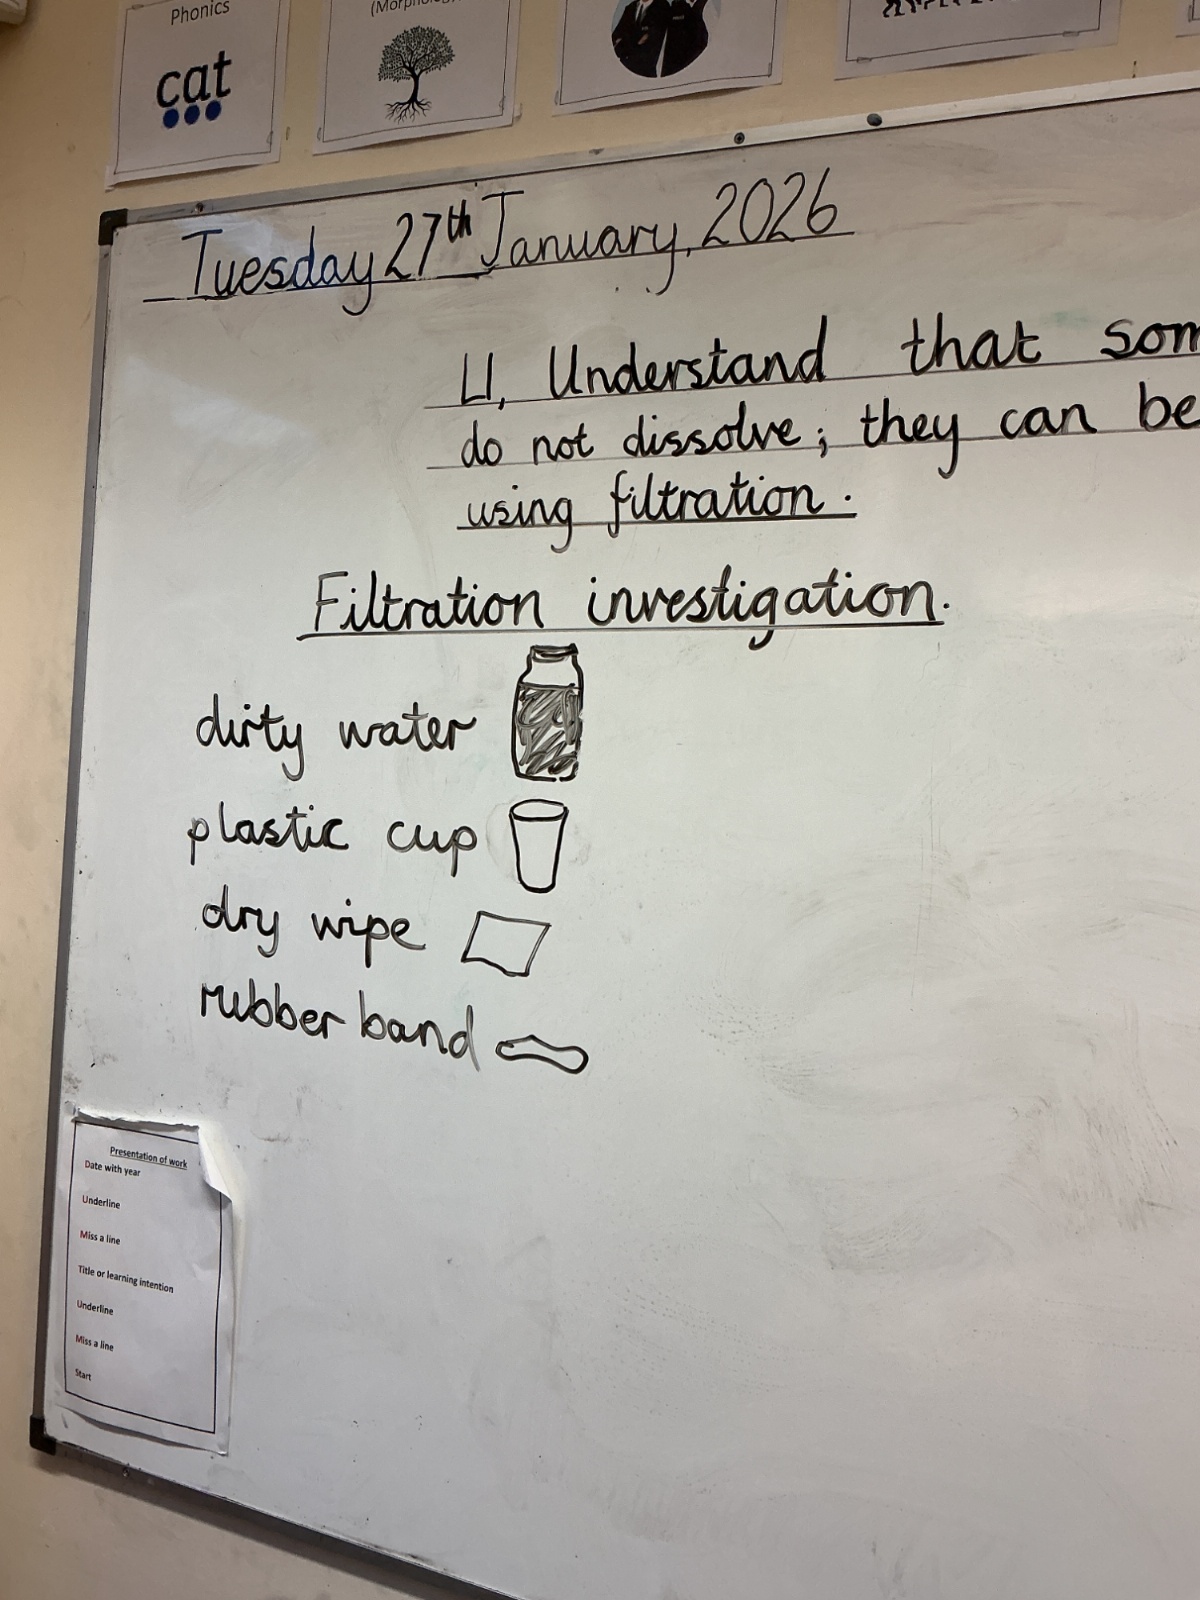 Phonics
cat
Tuesday 27th January, 2026
LI, Understand that som
do not dissolve; they can be
using filtration.
Filtration investigation.
dirty water
plastic cup
dry wipe
rubber band
Presentation of work
Date with year
Underline
Miss a line
Title or learning intention
Underline
Miss a line
Start